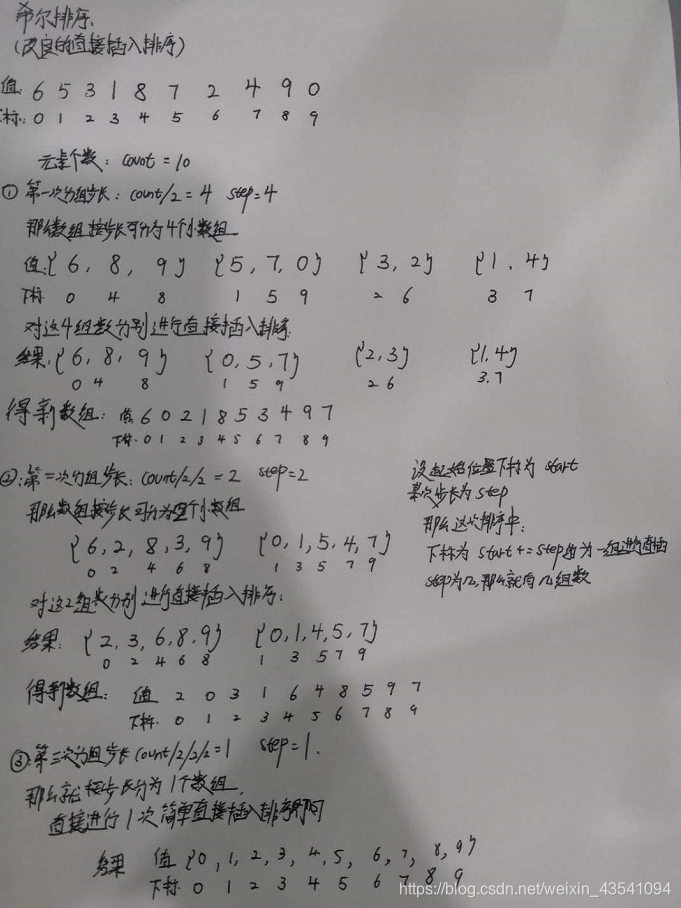 希尔排序.
(改良的直接插入排序)
值: 6 5 3 1 8 7 2 4 9 0
下标: 0 1 2 3 4 5 6 7 8 9
元素个数: count = 10
① 第一次分组步长: count/2 = 4 step=4
那么数组按步长可分为4个小数组
值: {6, 8, 9} {5, 7, 0} {3, 2} {1, 4}
下标 0 4 8 1 5 9 2 6 3 7
对这4组数分别进行直接插入排序.
结果: {6, 8, 9} {0, 5, 7} {2, 3} {1, 4}
0 4 8 1 5 9 2 6 3, 7
得新数组: 值 6 0 2 1 8 5 3 4 9 7
下标: 0 1 2 3 4 5 6 7 8 9
②: 第二次分组步长: count/2/2 = 2 step=2
那么数组按步长可分为2个小数组
{6, 2, 8, 3, 9} {0, 1, 5, 4, 7}
0 2 4 6 8 1 3 5 7 9
对这2组数分别进行直接插入排序:
结果: {2, 3, 6, 8, 9} {0, 1, 4, 5, 7}
0 2 4 6 8 1 3 5 7 9
得新数组: 值 2 0 3 1 6 4 8 5 9 7
下标: 0 1 2 3 4 5 6 7 8 9
设起始位置下标为 start
某次步长为 step
那么这次排序中:
下标为 start += step 的为一组进行直插
step为几,那么就有几组数
③: 第三次分组步长 count/2/2/2 = 1 step=1.
那么就按步长分为1个数组,
直接进行1次简单直接插入排序即可
结果 值 {0, 1, 2, 3, 4, 5, 6, 7, 8, 9}
下标: 0 1 2 3 4 5 6 7 8 9
https://blog.csdn.net/weixin_43541094